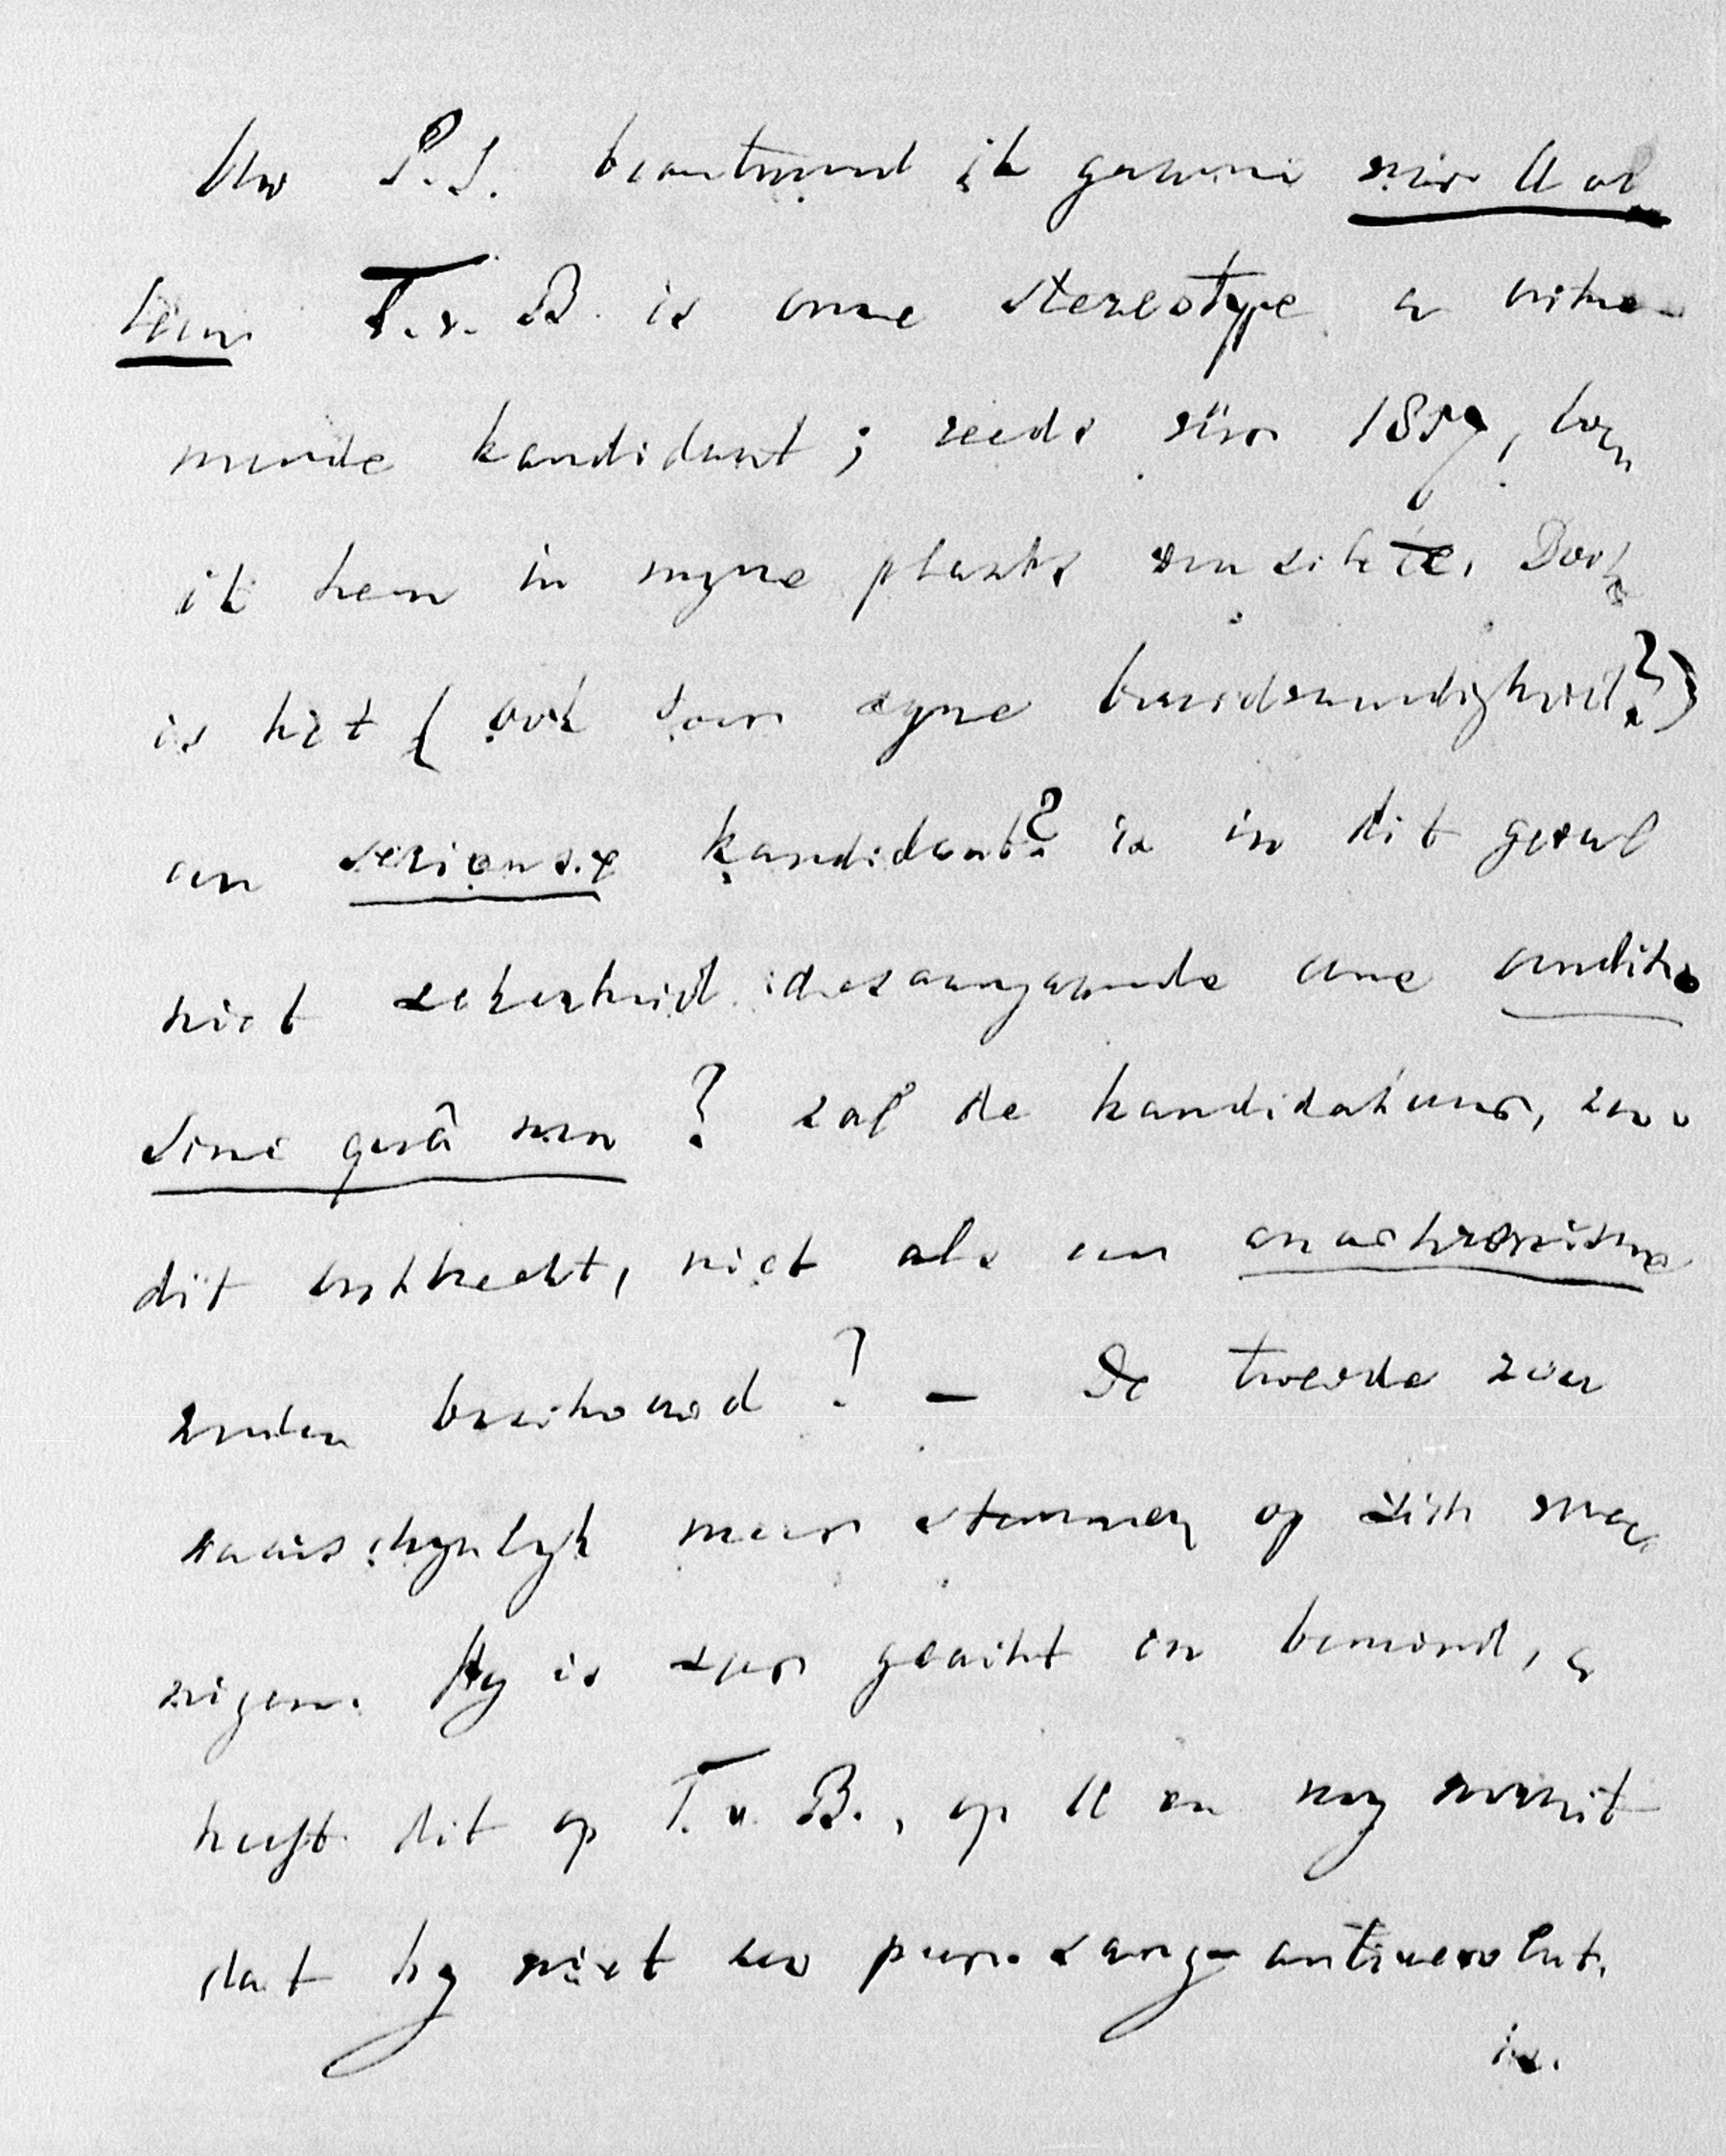 Uw P.S. beantwoord ik gaarne voor U al
leen. T. v. B. is onze stereotype en
kandidaat; reeds vóór 1857, toen
ik hem in myne plaats. Doch
is het (ook door zyne bereidvaardigheid?)
een serieuse kandidaat? is in dit geval
niet zekerheid desaangaande eene conditio
sine quâ non? zal de kandidatuur, zoo
dit ontbreekt, niet als een anachronisme
worden beschouwd? — De tweede zou
waarschynlyk meer stemmen op zich vree
nigen. Hy is zeer geacht en bemind, en
heeft dit op T. v. B., op U en my vooruit
dat hy niet zoo pur-sang antirevolut.
is.